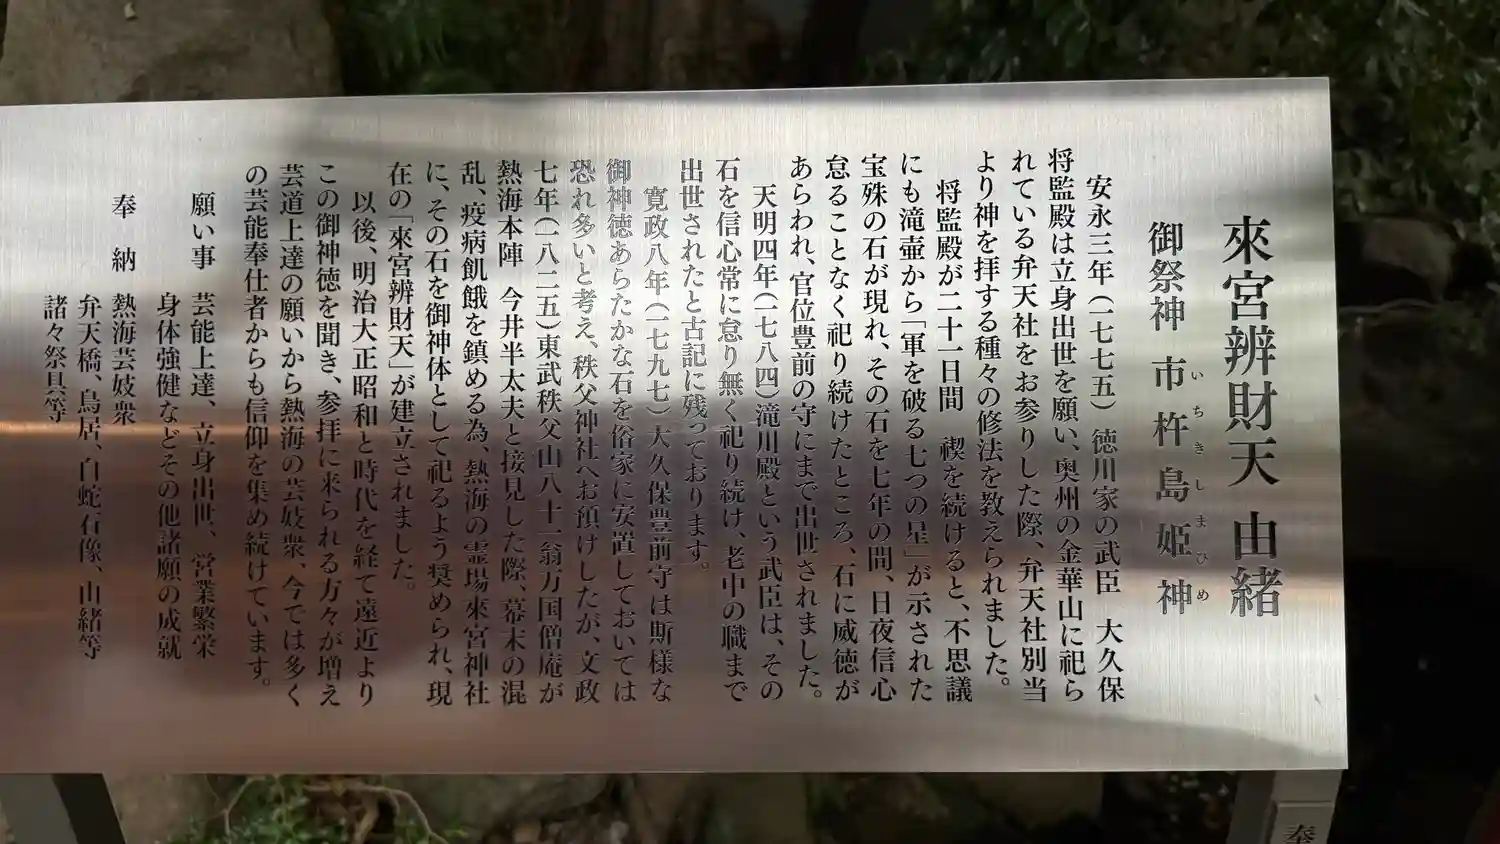 來宮辨財天 由緒
御祭神 市杵島姫神
いちきしまひめ
安永三年(一七七五)徳川家の武臣 大久保
将監殿は立身出世を願い、奥州の金華山に祀ら
れている弁天社をお参りした際、弁天社別当
より神を拝する種々の修法を教えられました。
将監殿が二十一日間 禊を続けると、不思議
にも滝壷から「軍を破る七つの星」が示された
宝殊の石が現れ、その石を七年の間、日夜信心
怠ることなく祀り続けたところ、石に威徳が
あらわれ、官位豊前の守にまで出世されました。
天明四年(一七八四)滝川殿という武臣は、その
石を信心常に怠り無く祀り続け、老中の職まで
出世されたと古記に残っております。
寛政八年(一七九七)大久保豊前守は斯様な
御神徳あらたかな石を俗家に安置しておいては
恐れ多いと考え、秩父神社へお預けしたが、文政
七年(一八二五)東武秩父山八十一翁万国僧庵が
熱海本陣 今井半太夫と接見した際、幕末の混
乱、疫病飢餓を鎮める為、熱海の霊場來宮神社
に、その石を御神体として祀るよう奨められ、現
在の「來宮辨財天」が建立されました。
以後、明治大正昭和と時代を経て遠近より
この御神徳を聞き、参拝に来られる方々が増え
芸道上達の願いから熱海の芸妓衆、今では多く
の芸能奉仕者からも信仰を集め続けています。
願い事 芸能上達、立身出世、営業繁栄
身体強健などその他諸願の成就
奉納 熱海芸妓衆
弁天橋、鳥居、白蛇石像、由緒等
諸々祭具等
奉